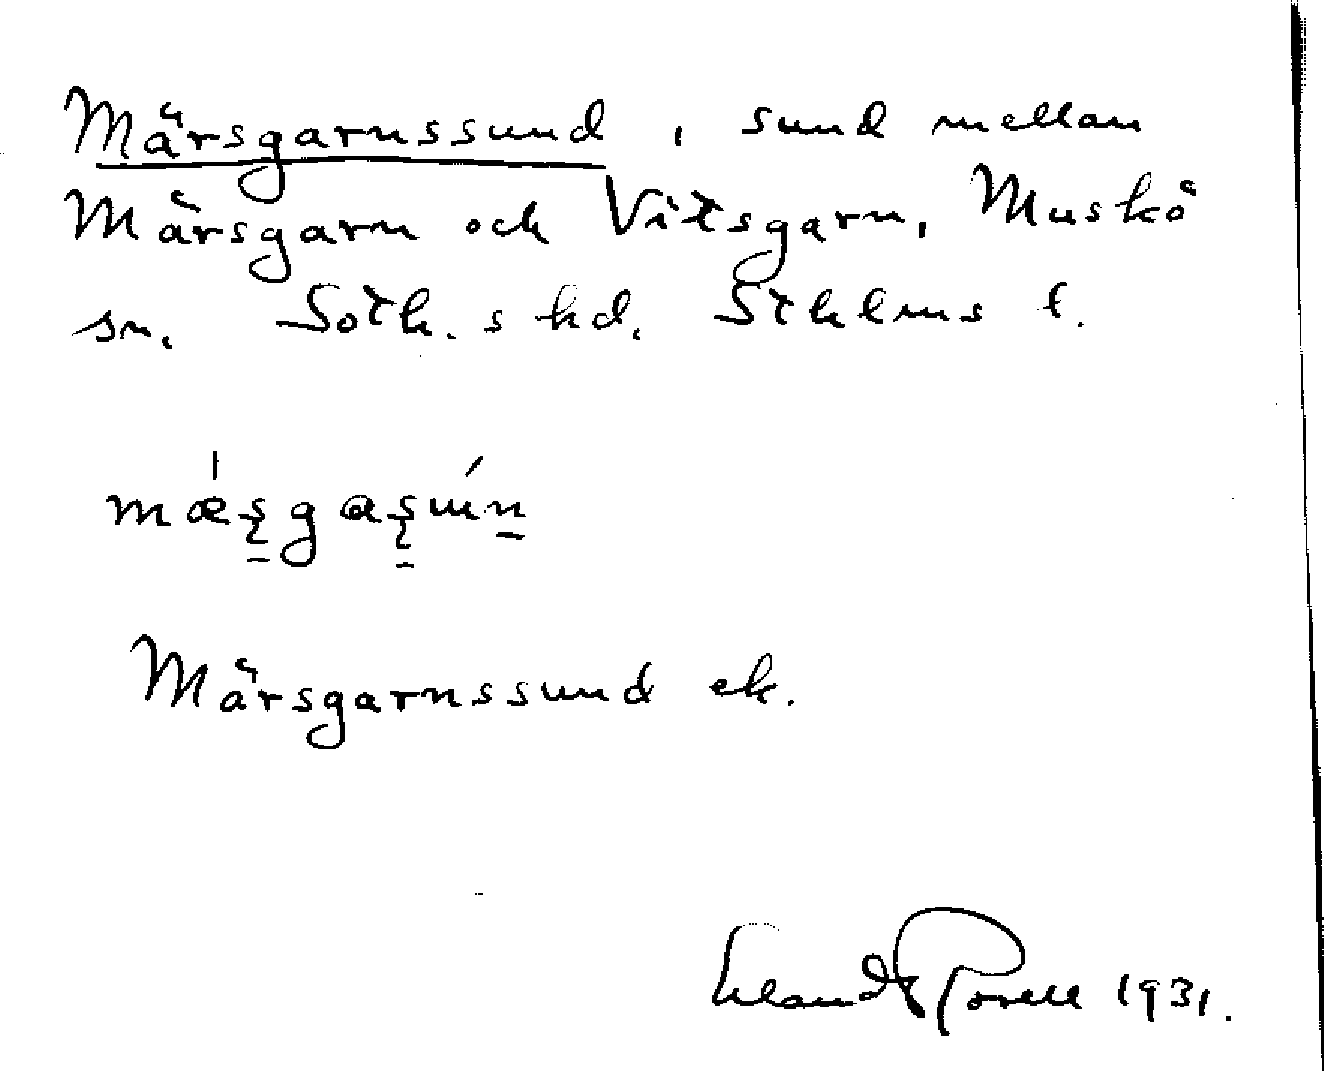 Märsgarnssund, sund mellan
Märsgarn och Vitsgarn, Muskö
sn. Soth. s hd. Sthlms l.
Märsgarnssund ek.
Erland Rosell 1931.